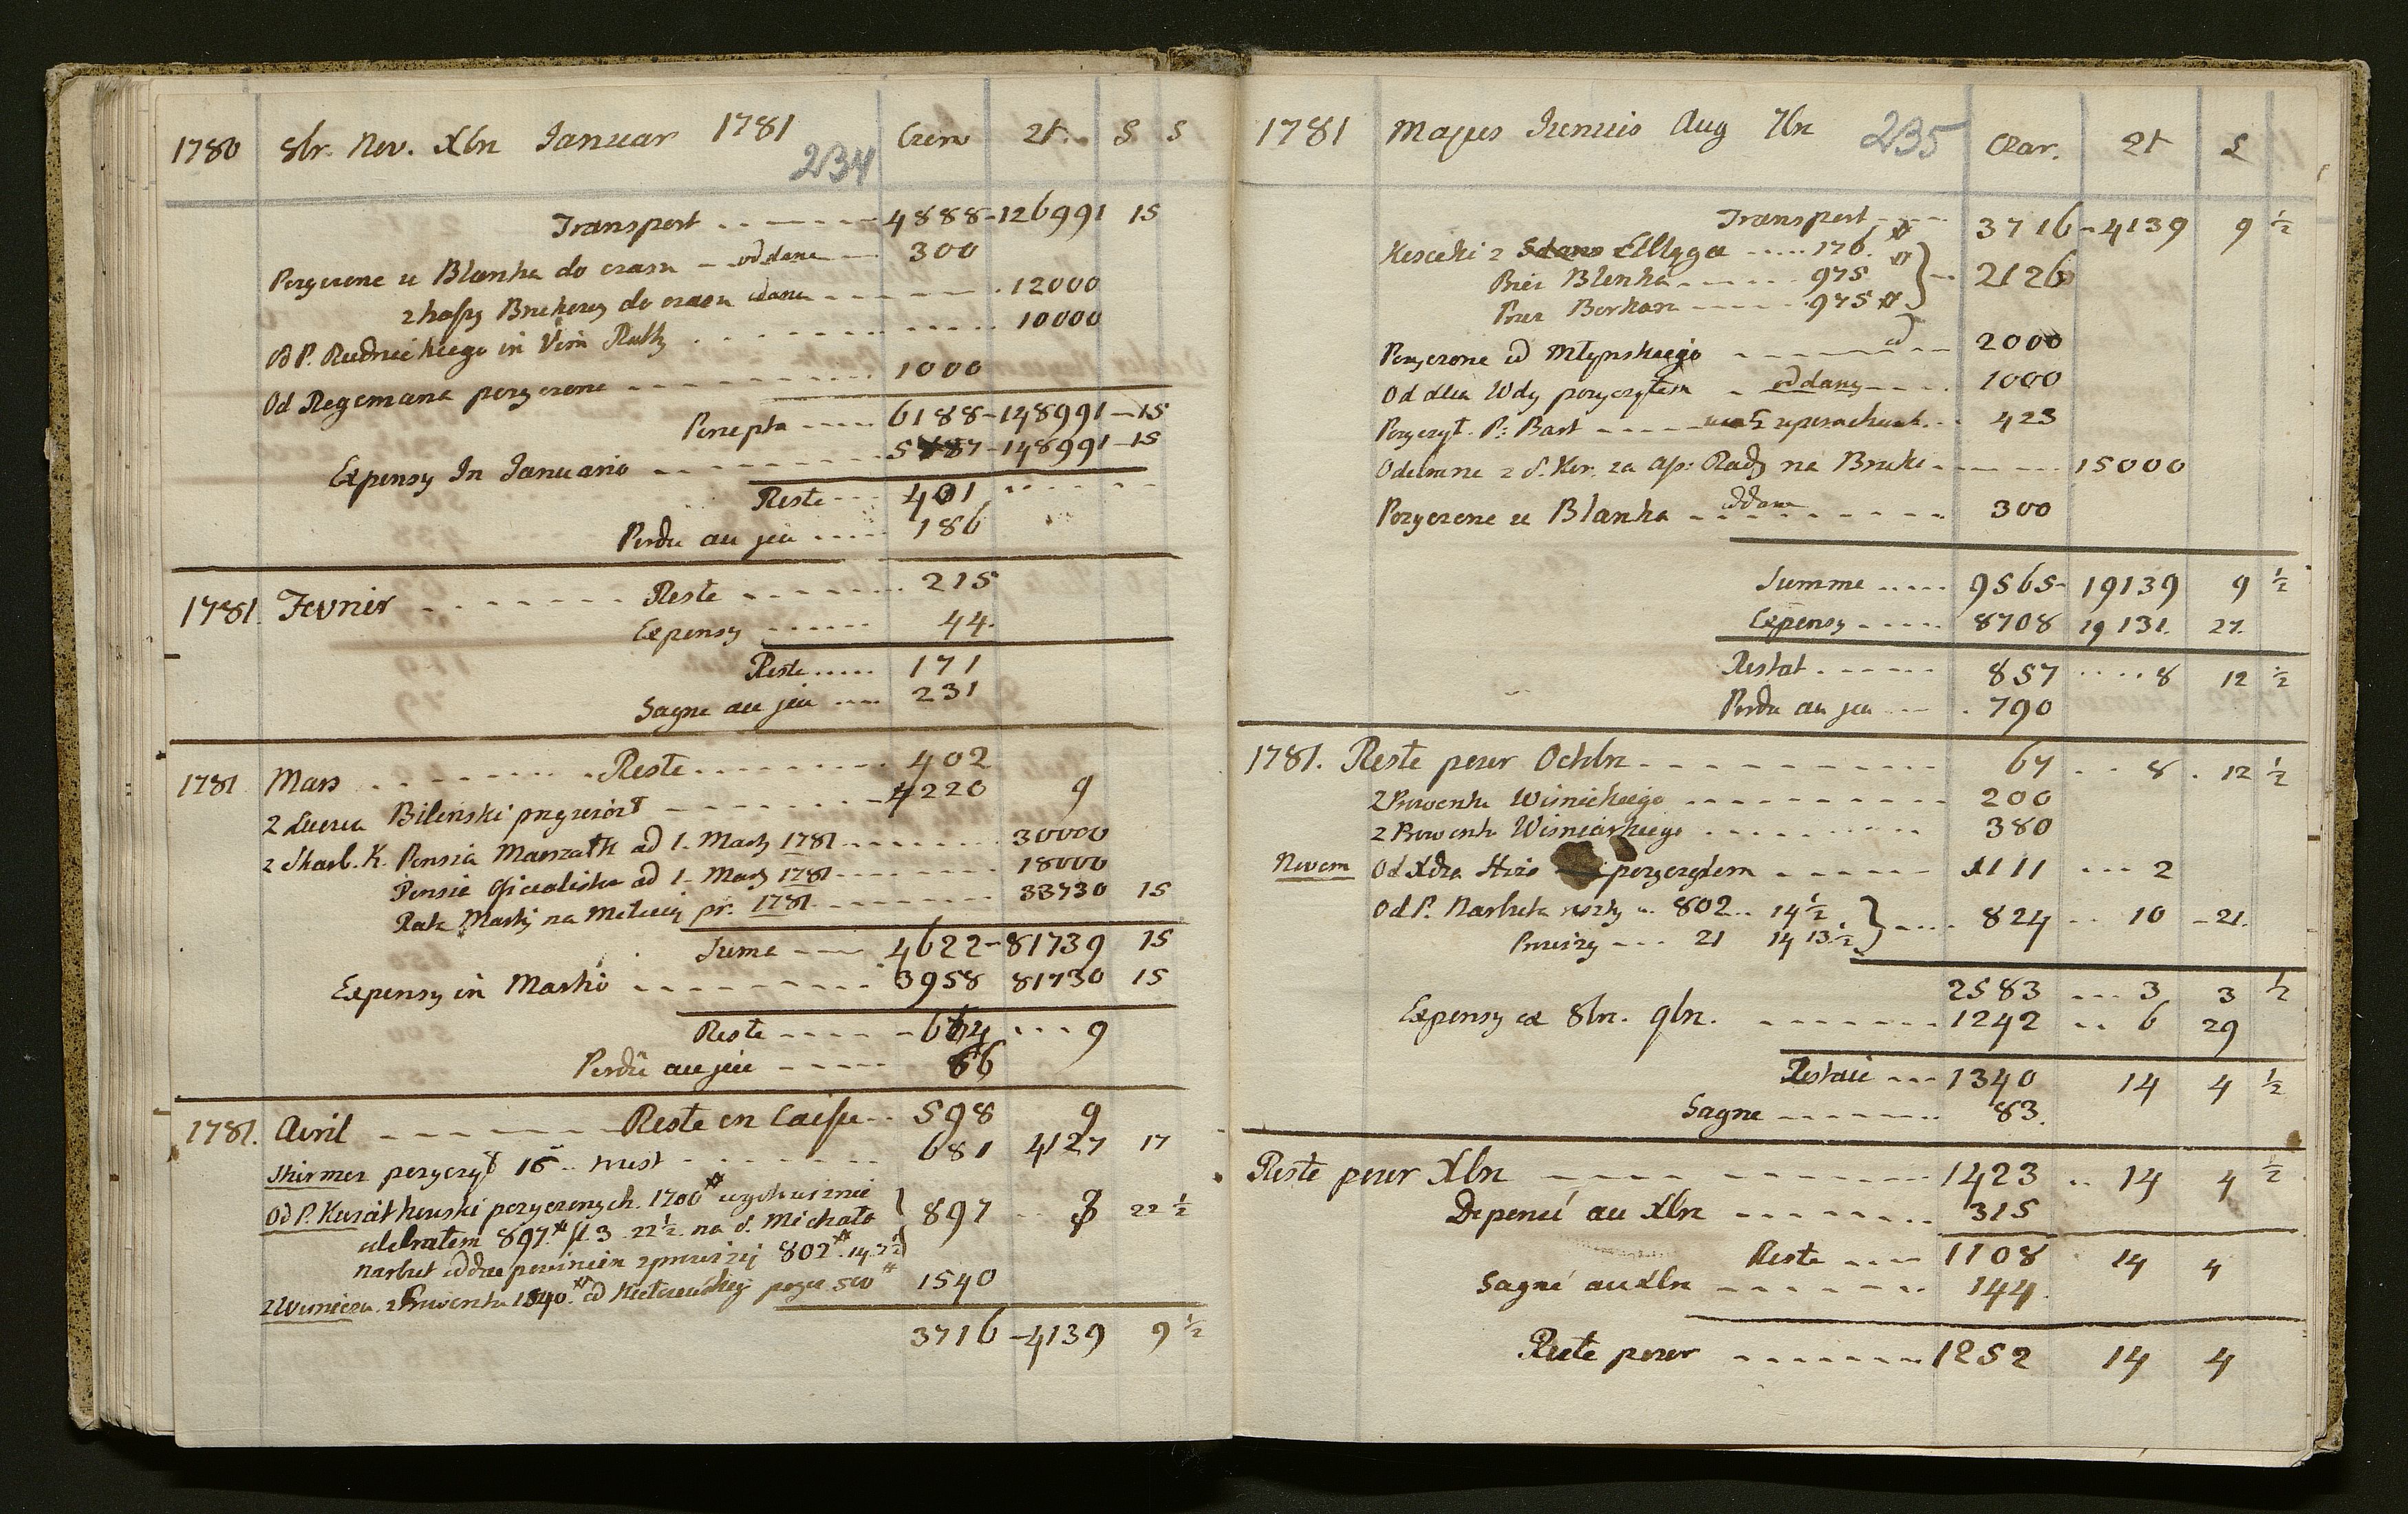 1780 8br. Nov. Xbr Januar 1781 Czerw Zł. S S
234
Transport 4888-126991 15
Pozyczone u Blanka do czasu - oddane 300
z kassy Brukowy do czasu oddane 12000
Od P. Rudnickiego in Vim Ratty 10000
Od Regemana pozyczone 1000
Percepta 6188-148991-15
Expensy In Januario 5787-148991-15
Reste 401
Perdu au jeu 186
1781. Fevrier Reste 215
Expensy 44.
Reste 171
Gagne au jeu 231
1781 Mars Reste 402
Z Łucza Bilenski przywiozł 4220 9
z Skarb. K. Pensia Marszałk ad 1. Marty 1781 30000
Pensie Oficialistom ad 1. Marty 1781 18000
Rata Marty na Meticuę pr. 1781 33730 15
Suma 4622-81739 15
Expensy in Martio 3958 81730 15
Reste 664 9
Perdû au jeu 66
1781. Avril Reste en Caisse 598 9
Shirmer pozyczył 681 4127 17
Od P. Kwiatkowski pozyczonych. 1700
odebrałem 897. fl. 3. 22½. na S. Michała 897 3 22½
Narbut oddac powinien z prowizeji 802. 14.
z Prowentu 1540. od 500 1540
3716-4139 9½
1781 Majus Junius Aug 7br Czer. Zł S
235
Transport 3716-4139 9½
176.
Przez Blanka 975 2126
Przez Borkan 975
Pozyczone od Młynskiego od 2000
Od dla Wdy pozyczyłem oddany 1000
Pozyczył. P: Bart 423
Odebrane z S. Kor. za As: Rady na Bruki 15000
Pozyczone u Blanka oddane 300
Summa 9565-19139 9½
Expensy 8708 19131. 27.
Restat 857 8 12½
Perdu au jeu 790
1781. Reste pour Octbr 67 8. 12½
Z Prowentu Wisnickiego 200
z Prowentu Wisniarskiego 380
Novem Od Xdza pozyczyłem 1111 2
Od P. Narbuta 802.. 14½ 824 10 -21.
Prowizy 21 14 13½
2583 3 3½
Expensy ex 8br. 9br. 1242 6 29
Restaie 1340 14 4½
Gagne 83.
Reste pour Xbr 1423 14 4½
Depensé au Xbr 315
Reste 1108 14 4
Gagné au Xbr 144.
Reste pour 1252 14 4